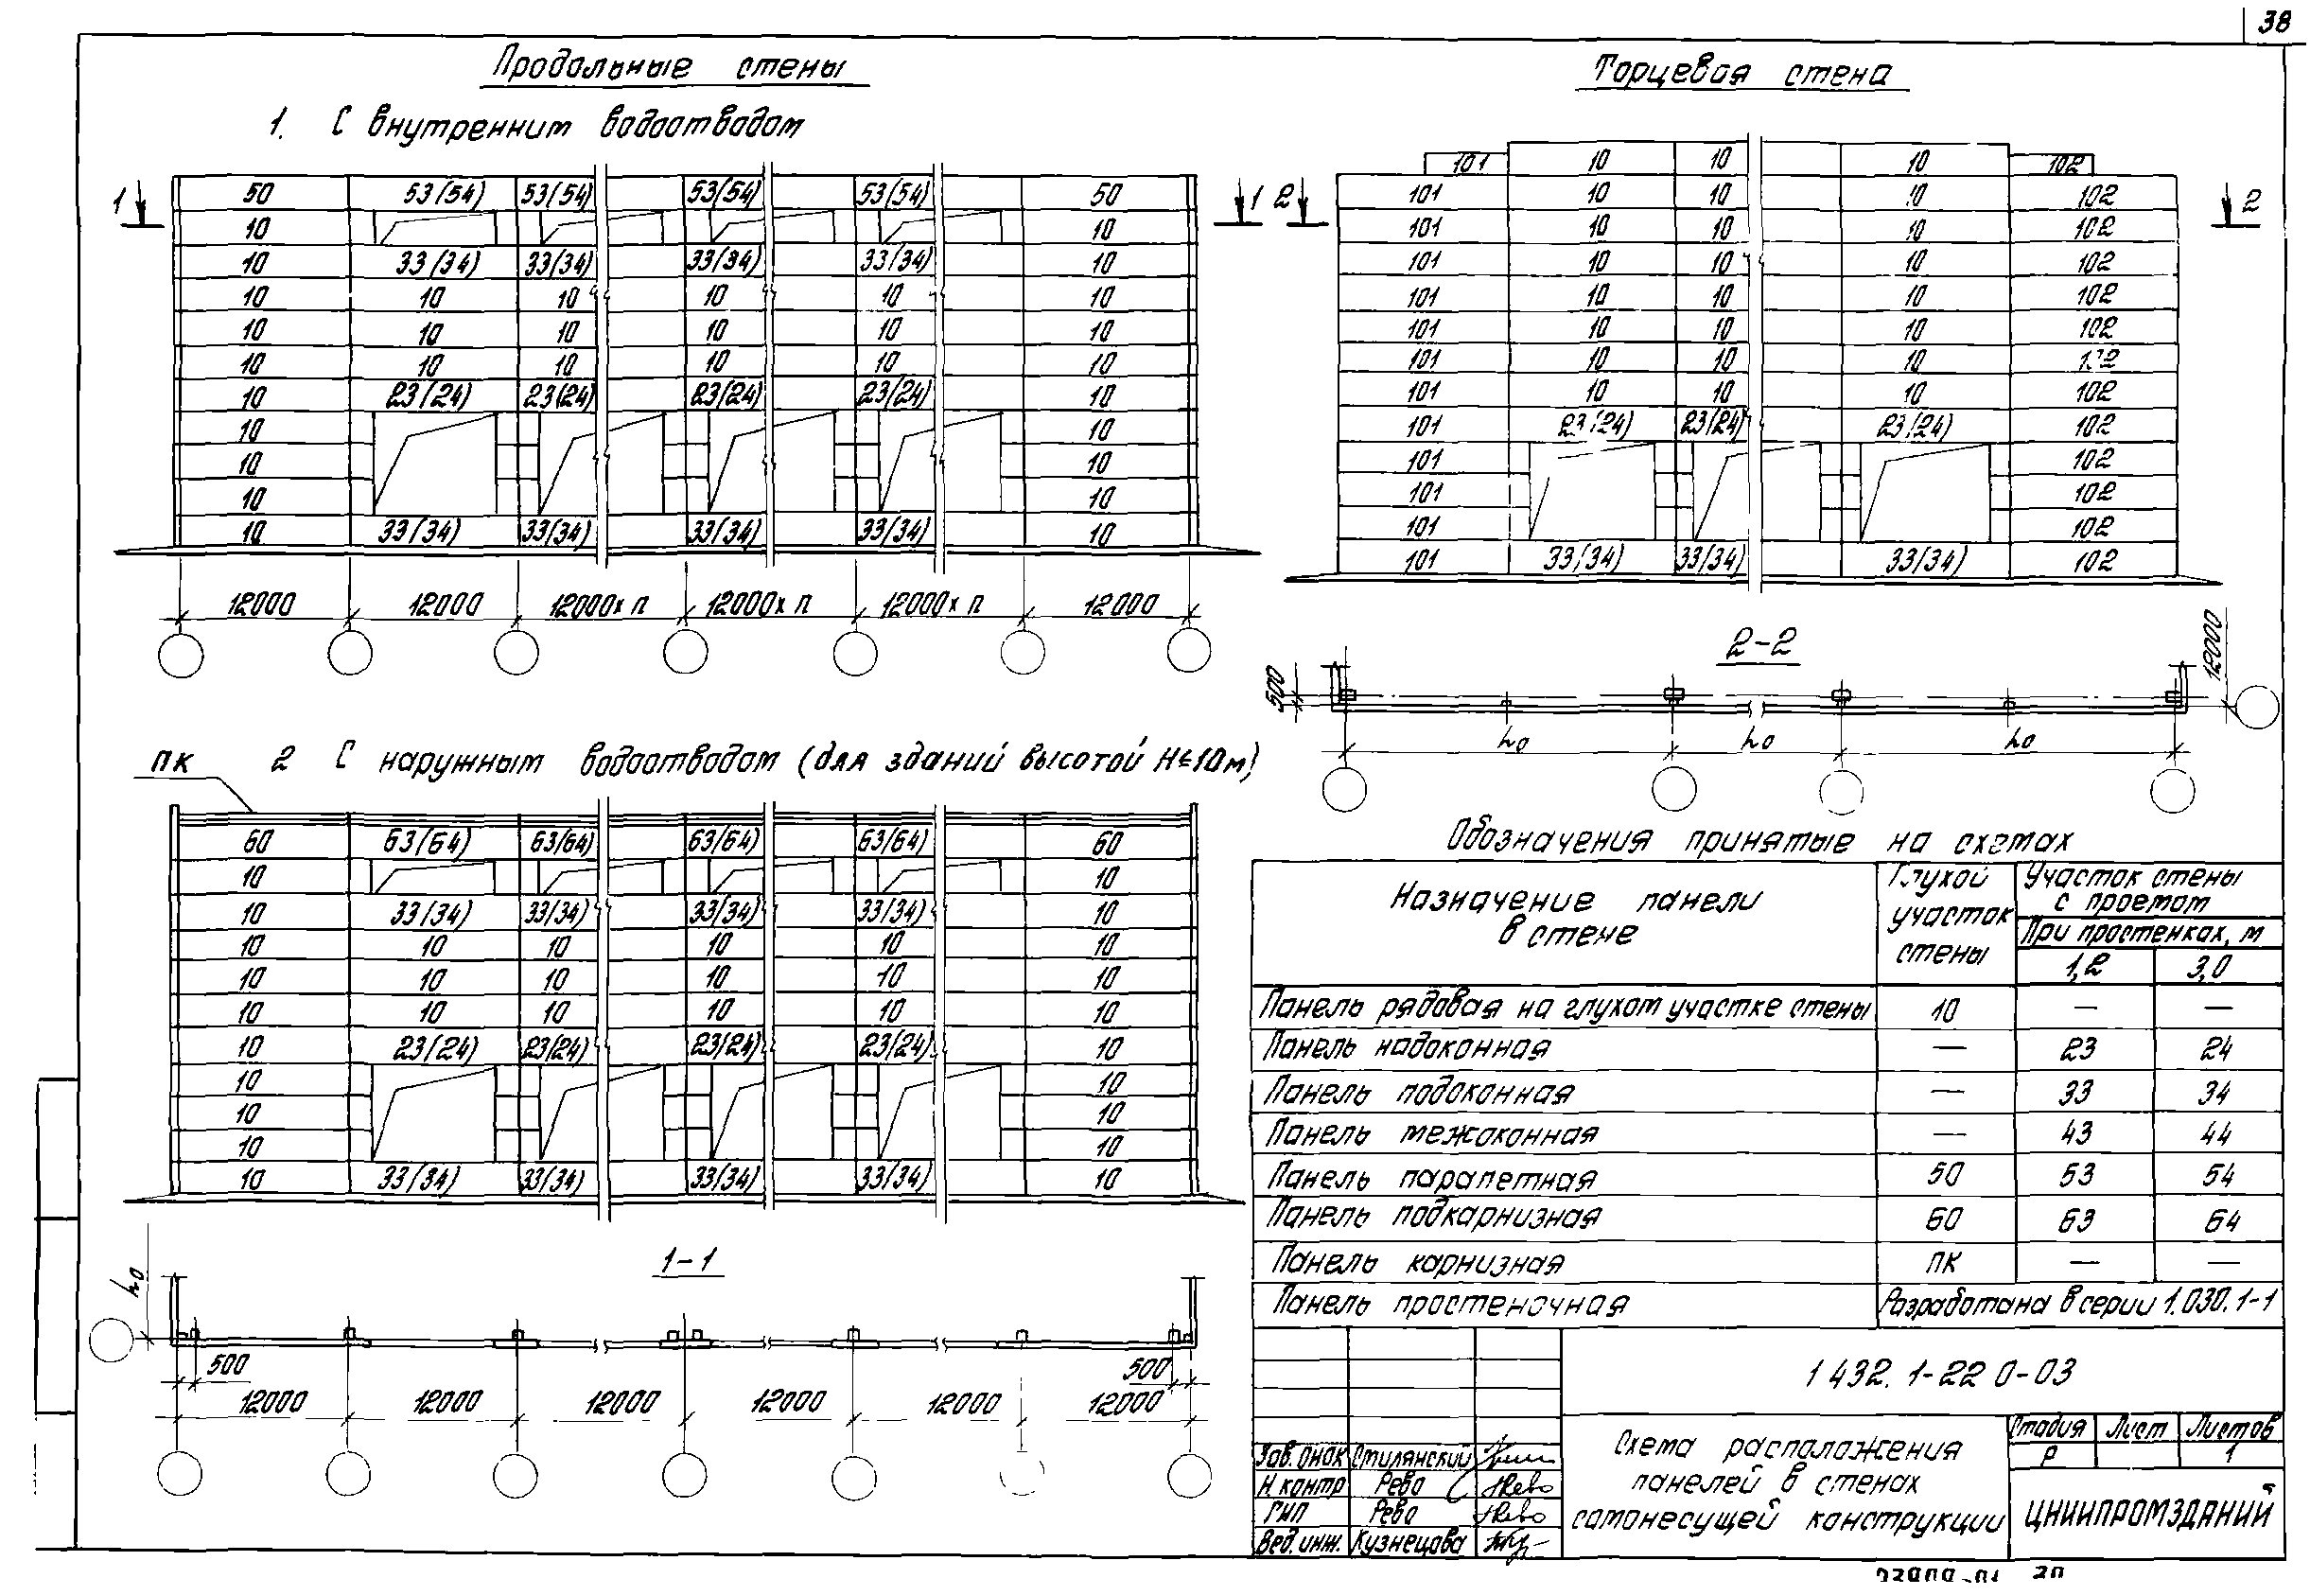 38
Продольные стены
1. С внутренним водоотводом
50 53/54) 53/54) 53/54) 53/54) 50
1 1
10 10
10 33/34) 33/34) 33/34) 33/34) 10
10 10 10 10 10 10
10 10 10 10 10 10
10 10 10 10 10 10
10 23/24) 23(24) 23/24) 23/24) 10
10 10
10 10
10 10
10 33/34) 33/34) 33/34) 33/34) 10
12000 12000 12000х п 12000х п 12000х п 12000
Торцевая стена
101 10 10 10 102
101 10 10 10 102
2 2
101 10 10 10 102
101 10 10 10 102
101 10 10 10 102
101 10 10 10 102
101 10 10 10 102
101 10 10 10 102
101 23/24) 23/24) 23/24) 102
101 102
101 102
101 102
101 33/34) 33/34) 33/34) 102
2-2
500 12000
h0 h0 h0
ПК
2 С наружным водоотводом (для зданий высотой Н≤10м)
60 63/64) 63/64) 63/64) 63/64) 60
10 10
10 33/34) 33/34) 33/34) 33/34) 10
10 10 10 10 10 10
10 10 10 10 10 10
10 10 10 10 10 10
10 23/24) 23/24) 23/24) 23/24) 10
10 10
10 10
10 10
10 33/34) 33/34) 33/34) 33/34) 10
1-1
h0
500 500
12000 12000 12000 12000 12000 12000
Обозначения принятые на схемах
Назначение панели в стене
Глухой участок стены
Участок стены с проемом
При простенках, м
1,2 3,0
Панель рядовая на глухом участке стены 10 — —
Панель надоконная — 23 24
Панель подоконная — 33 34
Панель межоконная — 43 44
Панель парапетная 50 53 54
Панель подкарнизная 60 63 64
Панель карнизная ПК — —
Панель простеночная Разработана в серии 1.030.1-1
1 432. 1-22 0-03
Схема расположения
панелей в стенах
самонесущей конструкции
Стадия Лист Листов
Р 1
ЦНИИПРОМЗДАНИЙ
Н. контр Рево
ГИП Рево
Вед. инж. Кузнецова